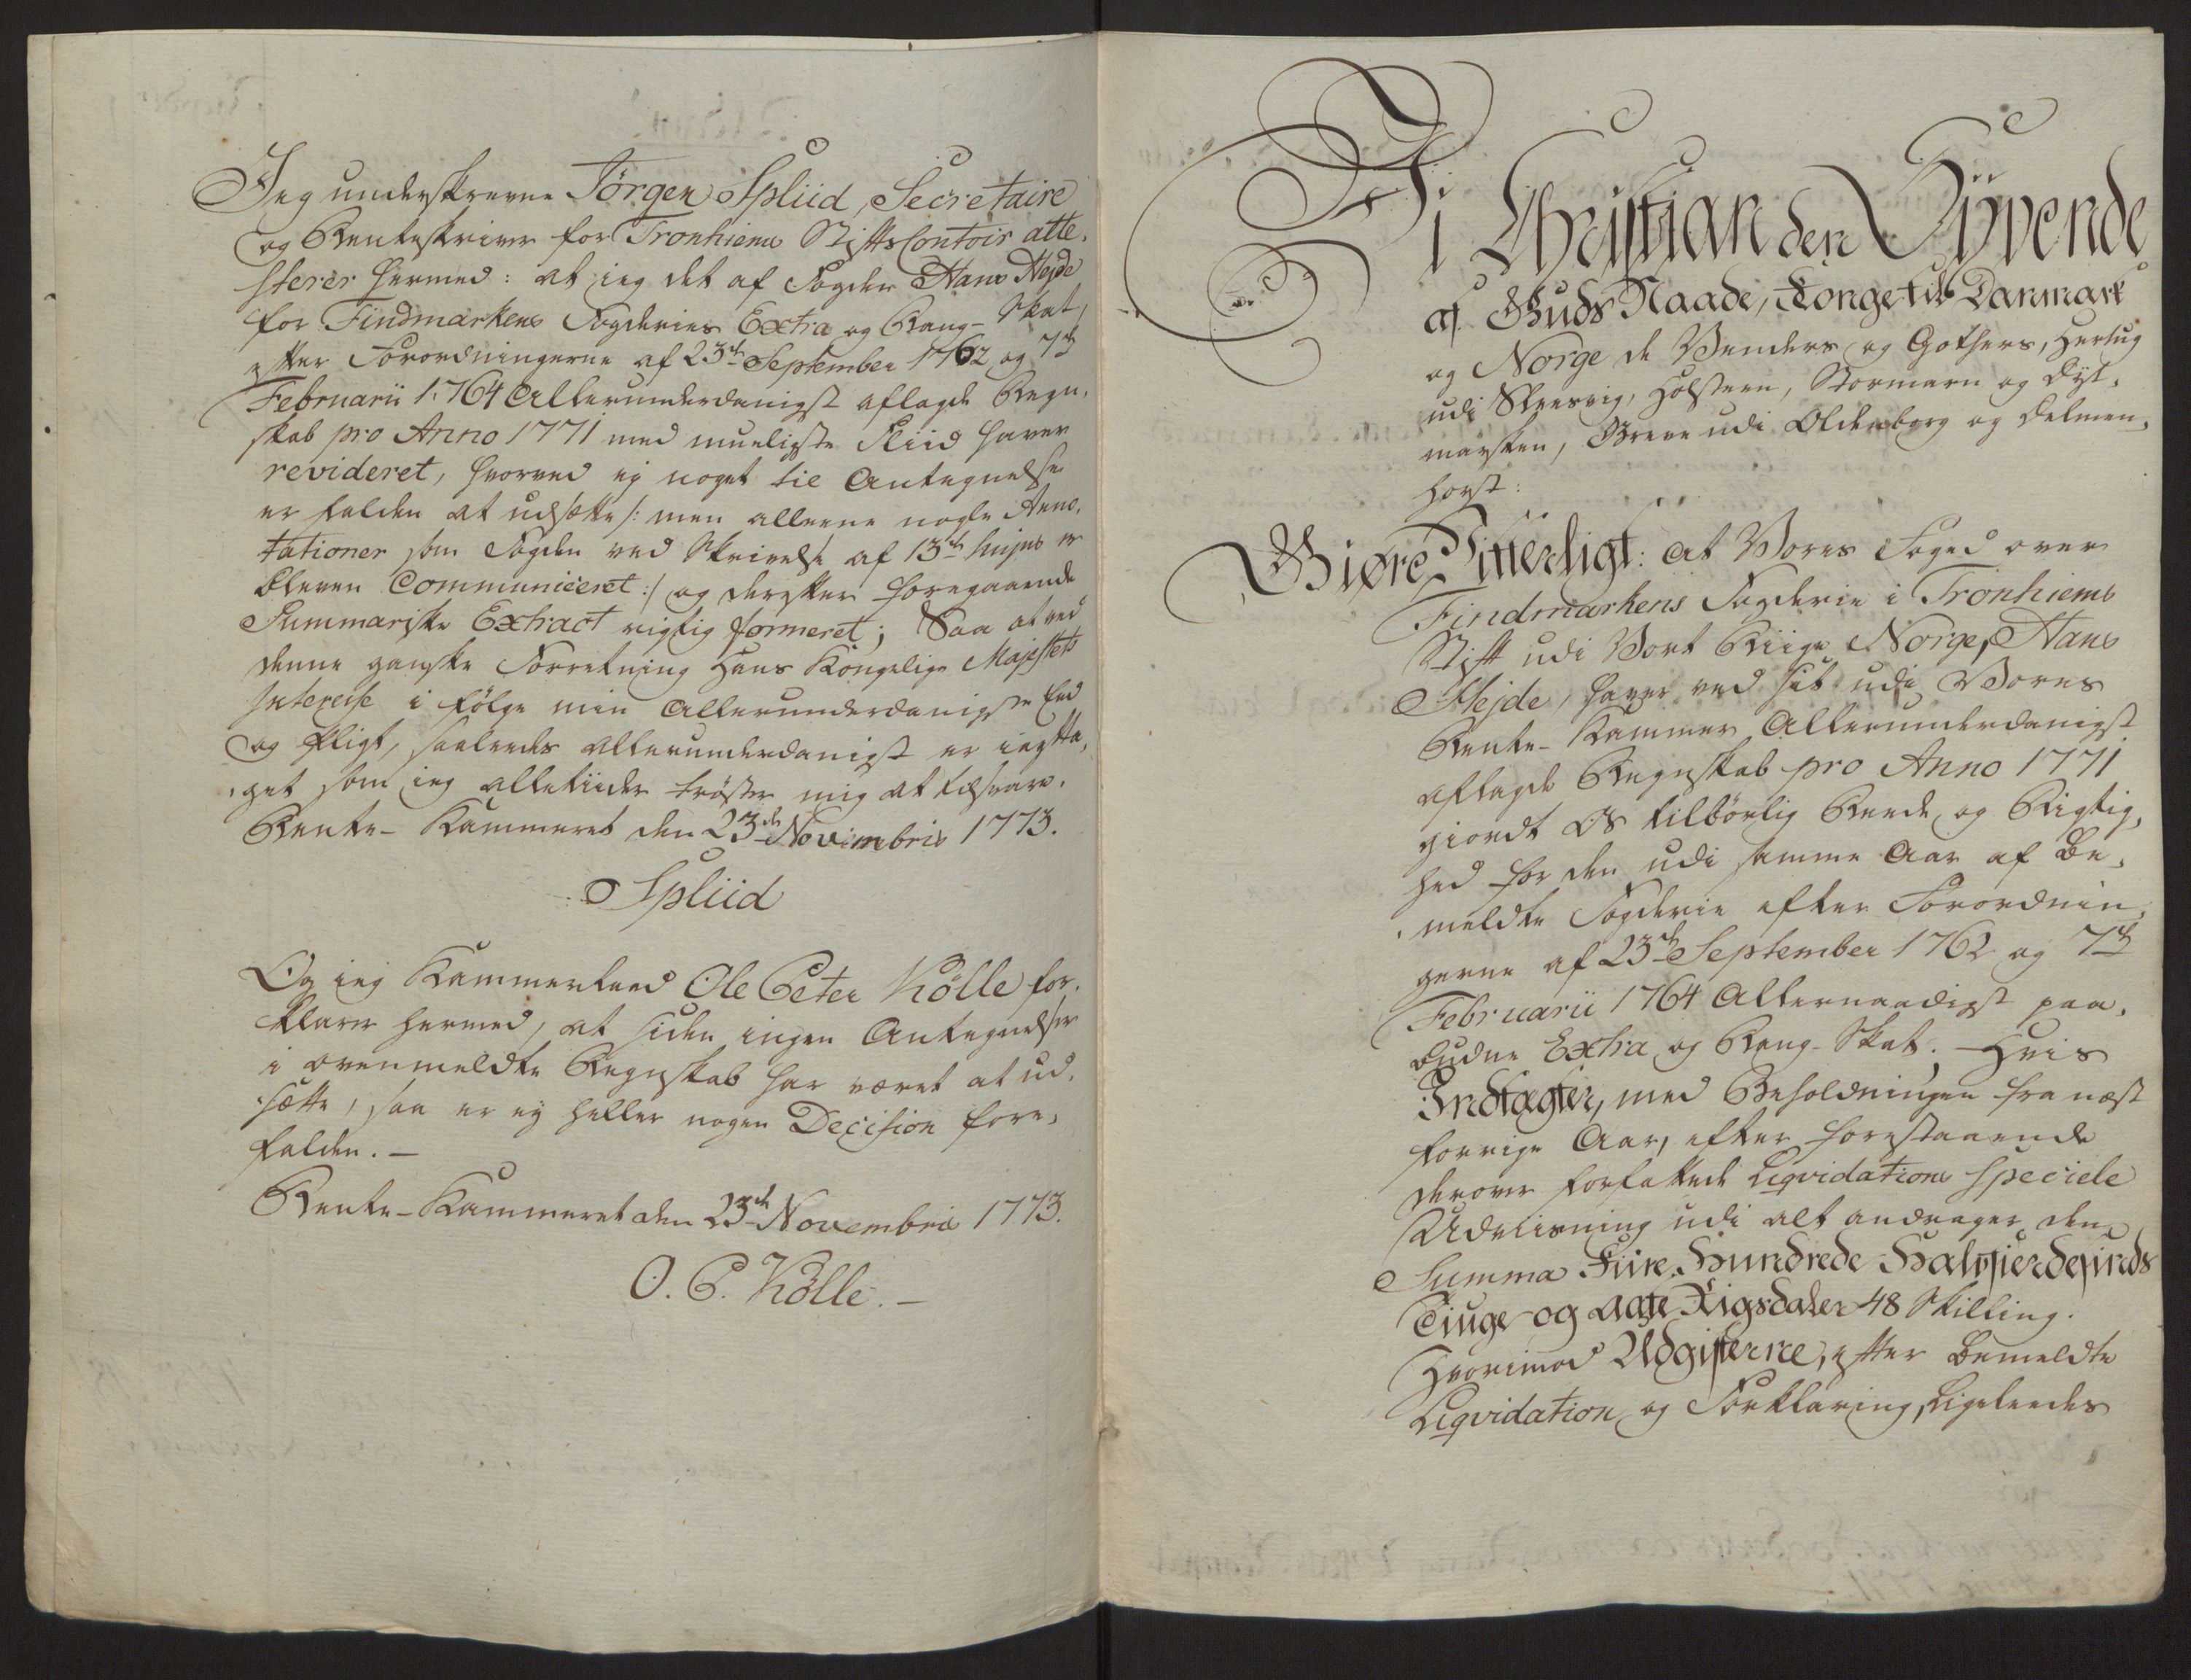 Jeg underskrevne Jörgen Spliid, Secretaire
og Renteskriver for Tronhiems Stifts Contoir atte-
sterer hermed: at jeg det af Fogden Hans Hejde
for Findmarkens Fogderies Extra og Rang-Skat,
efter Forordningerne af 23de September 1762 og 7de
Februarii 1764 Allerunderdanigst aflagde Regn-
skab pro Anno 1771 med mueligste Fliid haver
revideret, hvorved ej noget til Antegnelse
er falden at udsætte /: men alleene nogle Anno-
tationer som Fogden ved Skrivelse af 13de hujus er
bleven Communiceret :/ og derefter foregaaende
Summariske Extract rigtig formeret; Saa at ved
denne ganske Forretning Hans Kongelige Majestets
Interesse i følge min Allerunderdanigste Eed
og Pligt, saaledes allerunderdanigst er iagtta-
get som jeg alletiider trøster mig at tilsvare.
Rente-Kammeret den 23de Novembris 1773.
Spliid
Og jeg Kammerraad Ole Peter Kölle for-
klarer hermed, at siden ingen Antegnelser
i ovenmeldte Regnskab har været at ud-
sætte, saa er ej heller nogen Decision fore-
falden. —
Rente-Kammeret den 23de Novembris 1773.
O. P. Kölle. —
Vi Christian den Syvende
af Guds Naade, Konge til Danmark
og Norge de Venders og Gothers, Hertug
udi Slesvig, Holsteen, Stormarn og Dyt-
marsken, Greve udi Oldenborg og Delmen-
horst:
Giøre Vitterligt: at Vores Foged over
Findmarkens Fogderie i Tronhiems
Stift udi Vort Riige Norge, Hans
Hejde, haver ved sit udi Vores
Rente-Kammer Allerunderdanigst
aflagde Regnskab pro Anno 1771
giordt Os tilbørlig Reede og Rigtig-
hed for den udi samme Aar af be-
meldte Fogderie efter Forordnin-
gerne af 23de September 1762 og 7de
Februarii 1764 Allernaadigst paa-
budne Extra og Rang-Skat. Hvis
Indtægter, med Beholdningen fra næst
forrige Aar, efter forestaaende
derover forfattede Liqvidations Speciele
Udviisning udi alt andrager den
Summa Fiire Hundrede Halvfierdesinds
Tiuge og aatte Rigsdaler 48 Skilling.
Hvorimod Udgifterne, efter bemeldte
Liqvidation og Forklaring, ligeledes